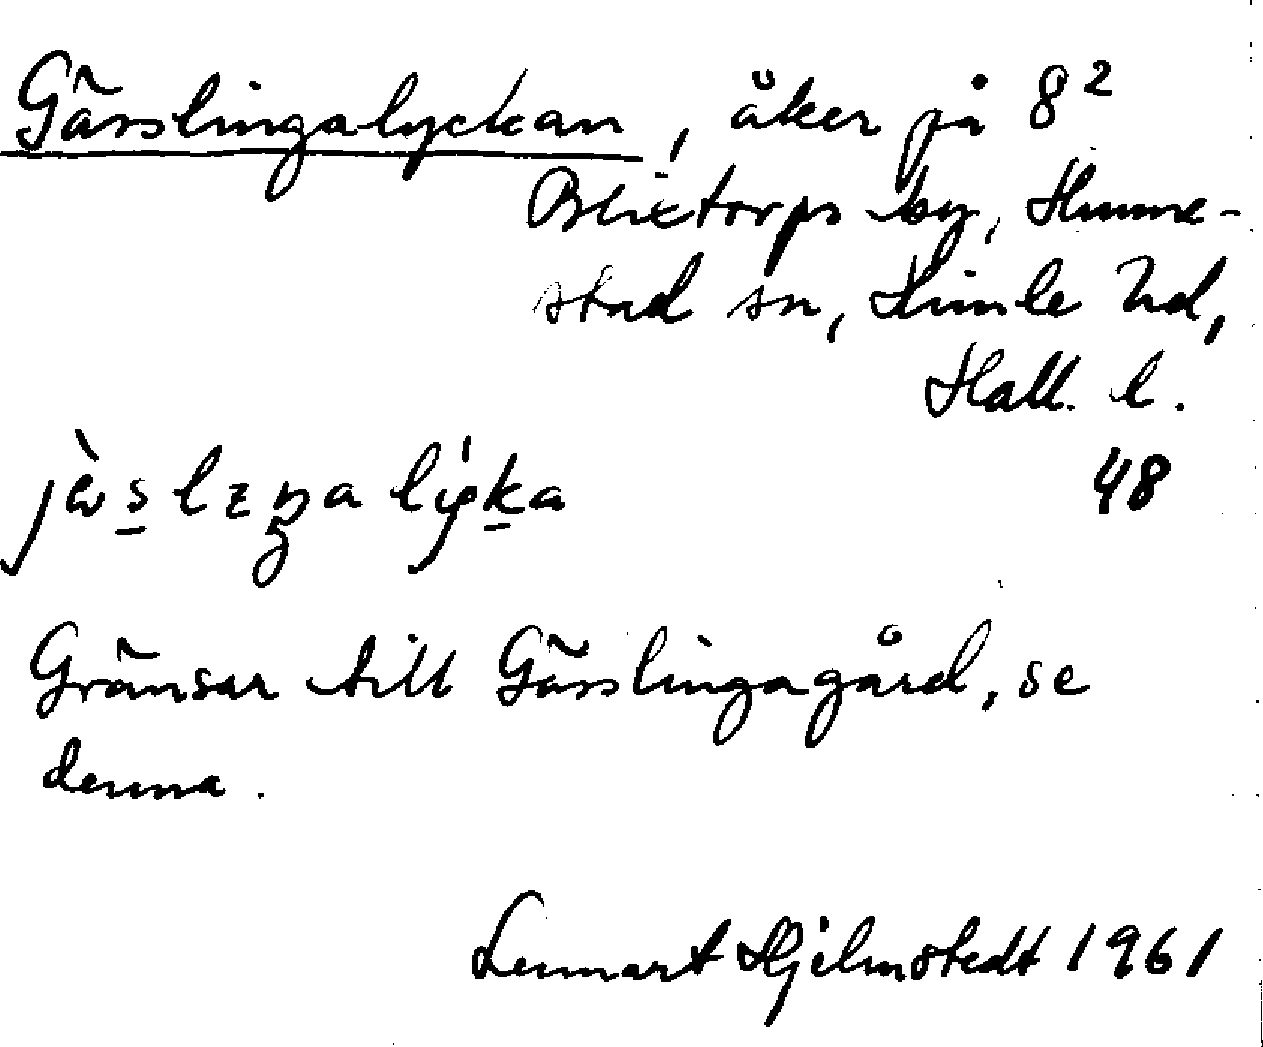 Gässlingalyckan, åker på 8²
Blixtorps by, Hunne-
stad sn, Himle hd,
Hall. l.
48
Gränsar till Gässlingagård, se
denna.
Lennart Hjelmstedt 1961